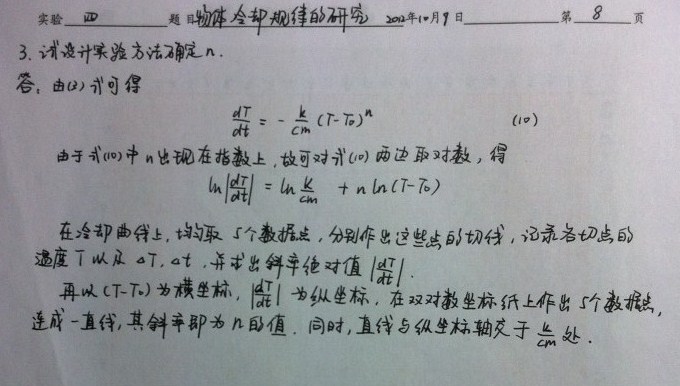 实验 四 题目 物体冷却规律的研究 2012年10月9日 第 8 页
3. 试设计实验方法确定n.
答: 由(2)式可得
dT/dt = - k/cm (T-T₀)ⁿ (10)
由于式(10)中n出现在指数上, 故可对式(10)两边取对数, 得
ln|dT/dt| = ln k/cm + n ln(T-T₀)
在冷却曲线上, 均匀取5个数据点, 分别作出这些点的切线, 记录各切点的
温度T以及ΔT, Δt, 并求出斜率绝对值|dT/dt|.
再以(T-T₀)为横坐标, |dT/dt|为纵坐标, 在双对数坐标纸上作出5个数据点,
连成一直线, 其斜率即为n的值. 同时, 直线与纵坐标轴交于k/cm处.